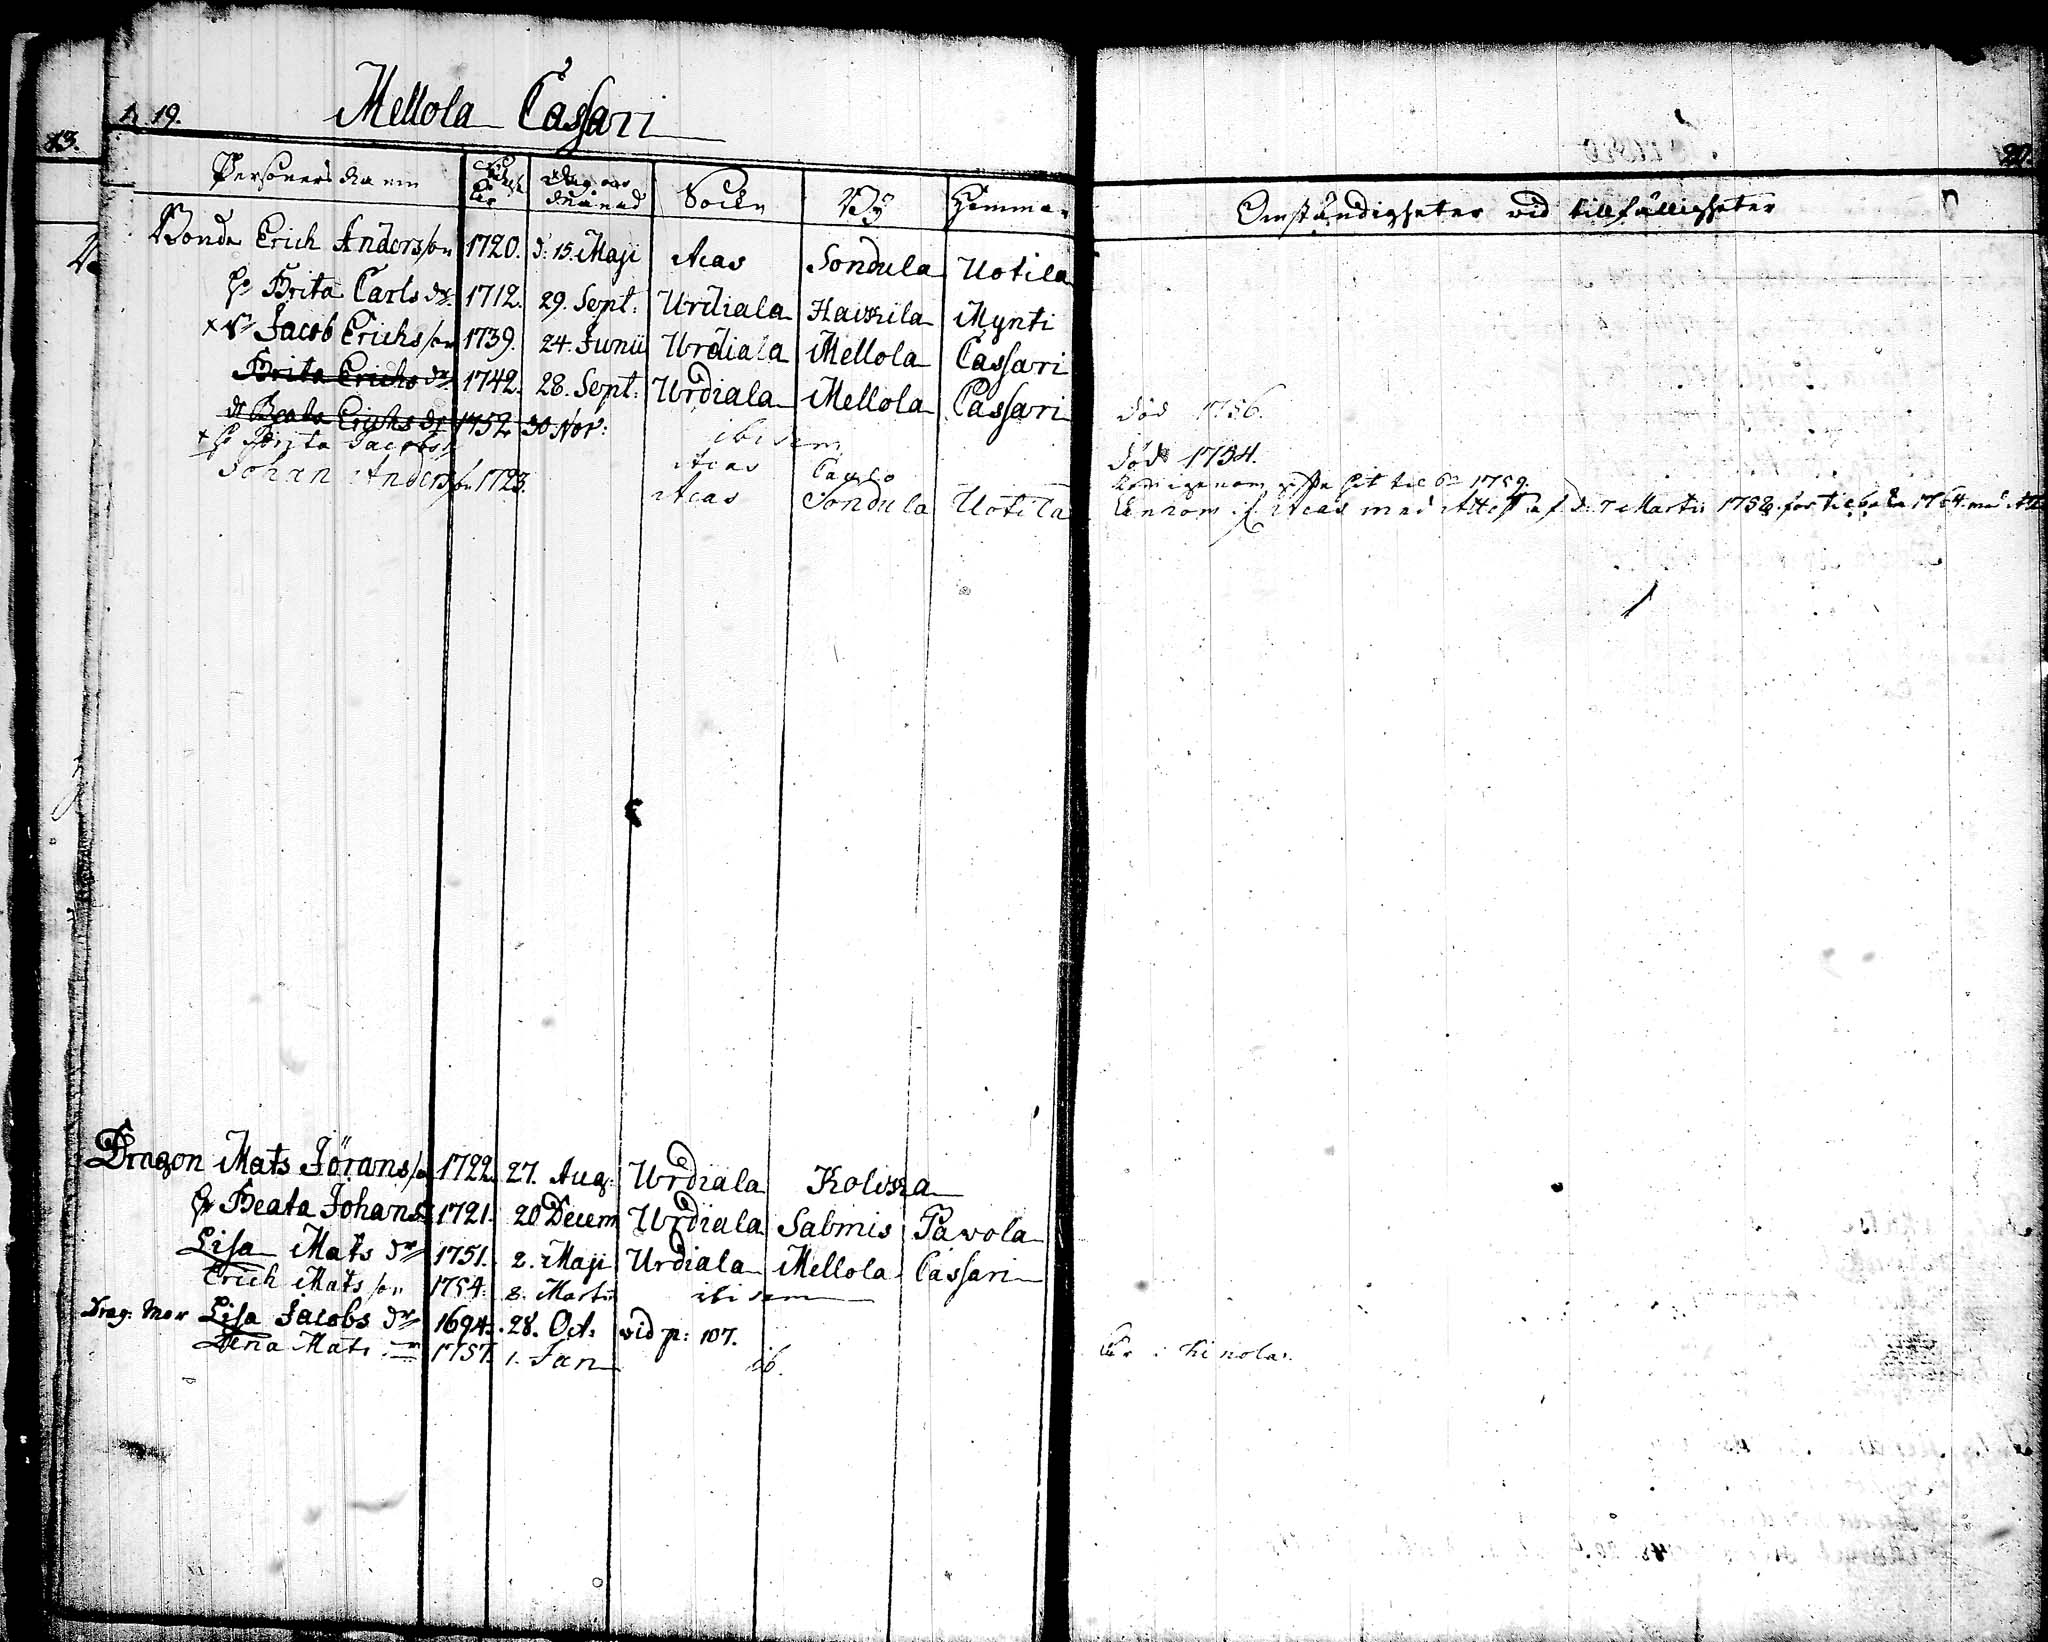 19.
Mellola Cassari
13.
20.
Personers Namn Dag och Månad Sokn By Hemman
Omständigheter vid tillfälligheter
Bonde Erich Andersson 1720. d: 15. Maji Acas Sondula Uotila
H: Brita Carls dr. 1712. 29. Sept: Urdiala Haukila Mynti
x Jacob Erichsson 1739. 24. Junii Urdiala Mellola Cassari
Brita Erichs dr 1742. 28. Sept: Urdiala Mellola Cassari död 1756.
dr Beata Erichs dr 1752 30 Nov: ibidem död 1754.
+ H Brita Jacobs dr Acas 1759.
Johan Andersson 1723. Acas Sondula Uotila Acas med Attest af d: 7 Martii 1758. 1764. med
Dragon Mats Jörans son 1722. 27. Aug: Urdiala Kolcka
H: Beata Johans 1721. 20 Decem Urdiala Salmis Pavola
Lisa Mats dr 1751. 2. Maji Urdiala Mellola Cassari
Erich Mats son 1754. 8. Martii ibidem
Drag: Mor Lisa Jacobs dr 1694. 28. Oct: vid p: 107.
Lena Mats 1757. 1. Jan ib. är i